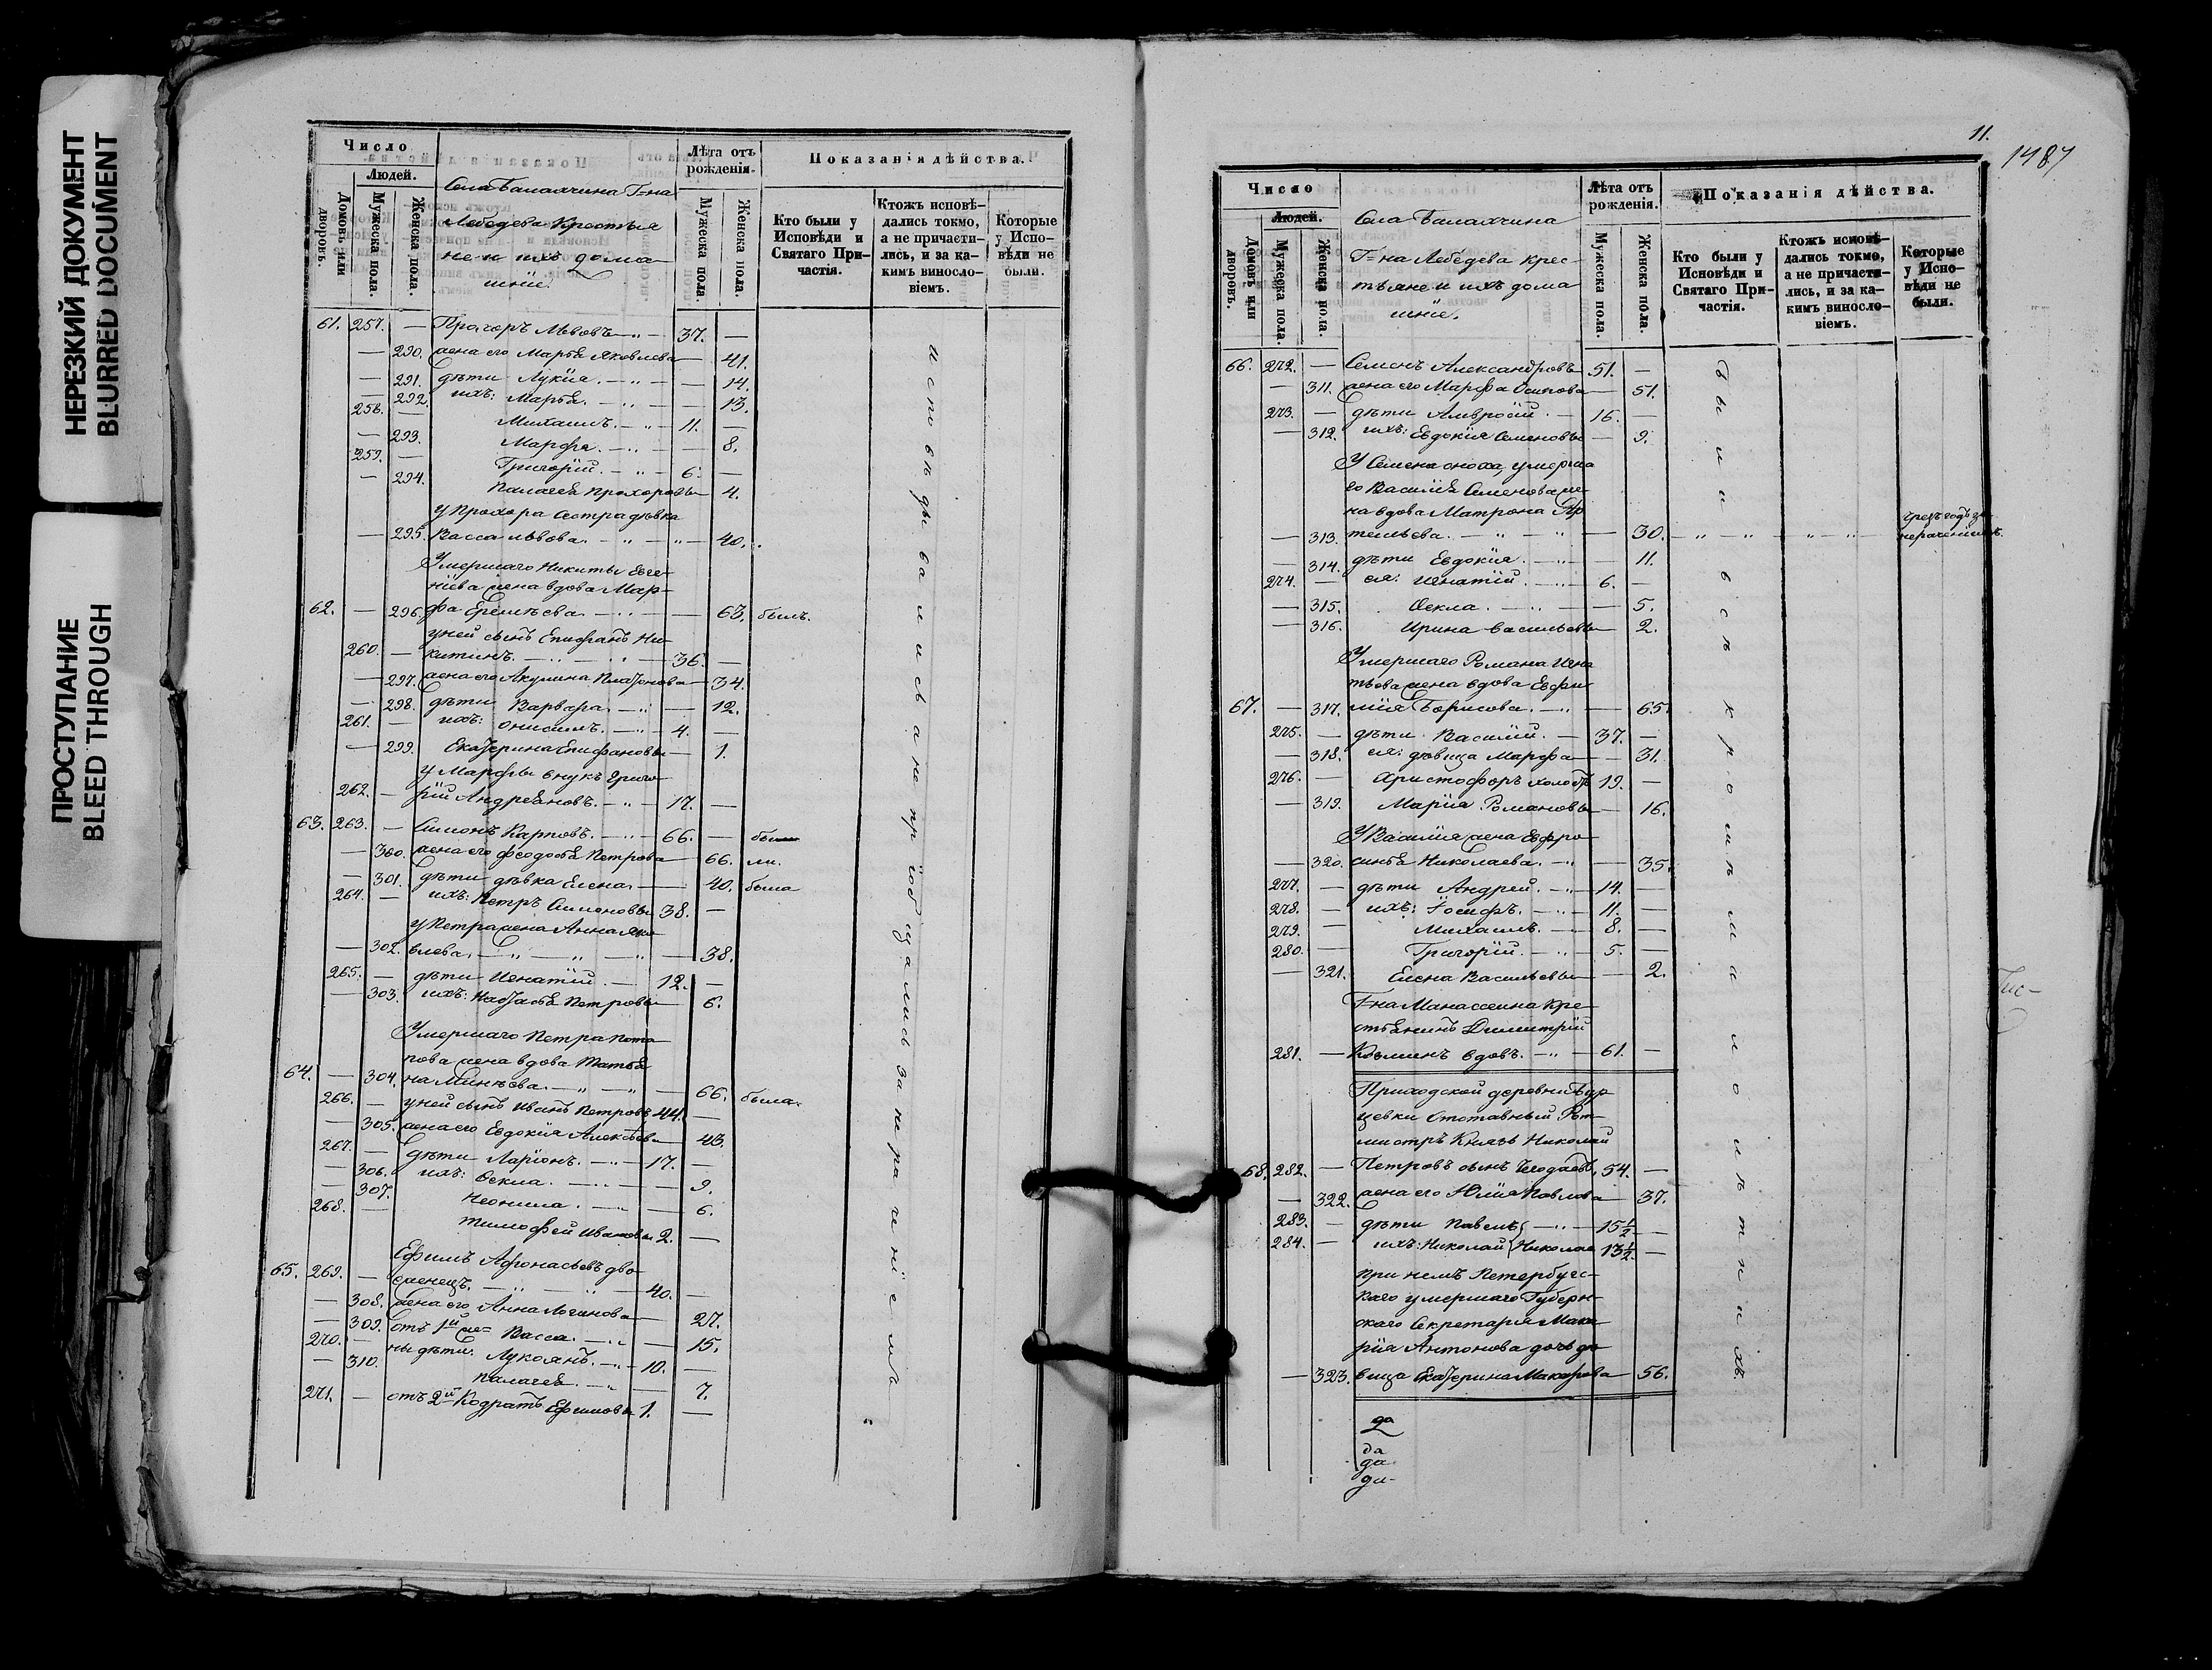 НЕРЕЗКИЙ ДОКУМЕНТ
BLURRED DOCUMENT
ПРОСТУПАНИЕ
BLEED THROUGH
Число
Людей.
Домовъ или дворовъ.
Мужеска пола.
Женска пола.
Села Балахчина Г=на
Лебедева Крестья
не и ихъ дома
шніе.
Лѣта отъ рожденія.
Мужеска пола.
Женска пола.
Показанія дѣйства.
Кто были у Исповѣди и Святаго Причастія.
Ктожъ исповѣдались токмо, а не причастились, и за какимъ винословіемъ.
Которые у Исповѣди не были.
61. 257. — Прохоръ Львовъ — 37. —
— 290. жена его Марья Яковлева — 41.
— 291. дѣти Лукія. — 14.
— 292. ихъ: Марья. — 13.
258. — Михаилъ. — 11. —
— 293. Марфа. — 8.
259. — Григорій. — 6. —
— 294. Палагея Прохоровы — 4.
У Прохора Сестра дѣвка
— 295. Васса Львова. — 40.
Умершаго Никиты Евге-
ніева жена вдова Мар-
62. — 296. фа Еремѣева. — 63. былъ.
у ней сынъ Епифанъ Ни-
260. — китинъ. — 36. —
— 297. жена его Акулина Платонова — 34.
— 298. дѣти Варвара. — 12.
261. — ихъ: Онисимъ. — 4. —
— 299. Екатерина Епифановы — 1.
у Марфы внукъ Григо-
262. — рій Андреяновъ. — 17. —
63. 263. — Симонъ Карповъ. — 66. — бы
— 300. жена его Феодосья Петрова — 66. ли.
— 301. дѣти дѣвка Елена. — 40. была
264. — ихъ: Петръ Симоновы 38. —
у Петра жена Анна Яко-
— 302. влева. — 38.
265. — дѣти Игнатій. — 12. —
— 303. ихъ: Настасья Петровы — 6.
Умершаго Петра Пота
пова жена вдова Татья
64. — 304. на Минѣева. — 66. была.
266. — у ней сынъ Иванъ Петровъ 44. —
— 305. жена его Евдокія Алексѣева — 43.
267. — дѣти Ларіонъ. — 17. —
— 306. ихъ: Ѳекла. — 9.
— 307. Неонила. — 6.
268. — Тимофей Ивановы 2. —
Ефимъ Афонасьевъ дво-
65. 269. — еженецъ. — 40. —
— 308. жена его Анна Логинова — 27.
— 309. отъ 1й же= Васса. — 15.
270. — ны дѣти: Лукоянъ. — 10. —
— 310. Палагея. — 7.
271. — отъ 2й Кодратъ Ефимовы 1. —
исповѣдывались а не пріобщались за нераченіемъ
11.
1487
Число
Людей.
Домовъ или дворовъ.
Мужеска пола.
Женска пола.
Села Балахчина
Г=на Лебедева крес-
тьяне и ихъ дома
шніе.
Лѣта отъ рожденія.
Мужеска пола.
Женска пола.
Показанія дѣйства.
Кто были у Исповѣди и Святаго Причастія.
Ктожъ исповѣдались токмо, а не причастились, и за какимъ винословіемъ.
Которые у Исповѣди не были.
66. 272. — Семенъ Александровъ 51. —
— 311. жена его Марфа Осипова — 51.
273. — дѣти Амвросій. — 16. —
— 312. ихъ: Евдокія Семеновы — 9.
У Семена сноха, умерша
го Василія Семенова же-
на вдова Матрона Ар
— 313. темьева. — 30.
чрезъ годъ за нераченіемъ.
— 314. дѣти Евдокія. — 11.
274. — ея: Игнатій. — 6. —
— 315. Ѳекла. — 5.
— 316. Ирина Васильевы — 2.
Умершаго Романа Игна
тьева жена вдова Евфи
67. — 317. мія Борисова. — 65.
275. — дѣти Василій. — 37. —
— 318. ея: дѣвица Марфа — 31.
276. — Христофоръ холостъ 19. —
— 319. Марія Романовы — 16.
У Василія жена Евфро
— 320. синья Николаева. — 35.
277. — дѣти Андрей. — 14. —
278. — ихъ: Іосифъ. — 11. —
279. — Михаилъ. — 8. —
280. — Григорій. — 5. —
— 321. Елена Васильевы — 2.
Г=на Манассеина Кре-
стьянинъ Димитрій
281. — Козминъ вдовъ. — 61. —
Приходской деревни Бур
цевки Отставный Рот-
мистръ Князь Николай
68. 282. — Петровъ сынъ Чегодаевъ, 54. —
— 322. жена его Юлія Павлова — 37.
283. — дѣти Павелъ — 15½ —
284. — ихъ: Николай } Николае 13½ —
При немъ Петербугс-
каго умершаго Губерн-
скаго Секретаря Мака
рія Антонова дочь дѣ
— 323. вица Екатерина Макарова — 56.
Были всѣ кромѣ малолѣтнихъ.
да
да
да
ди-